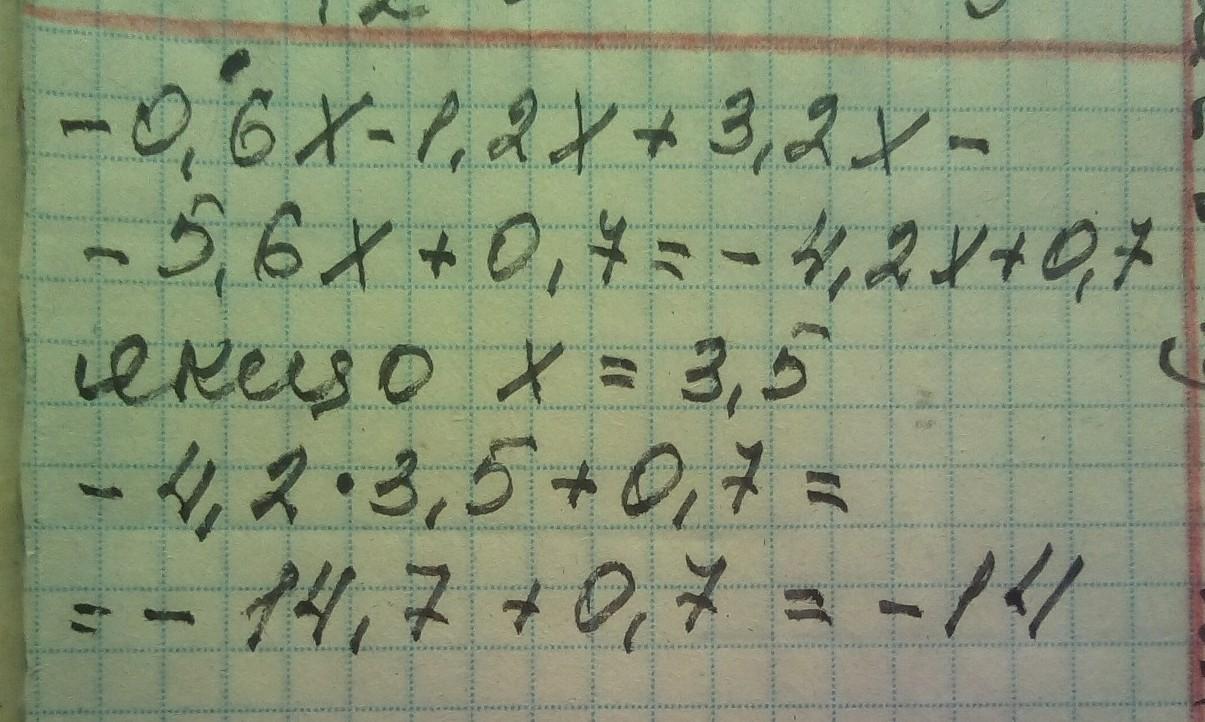 -0,6x-1,2x+3,2x-
-5,6x+0,7=-4,2x+0,7
якщо x=3,5
-4,2·3,5+0,7=
=-14,7+0,7=-14